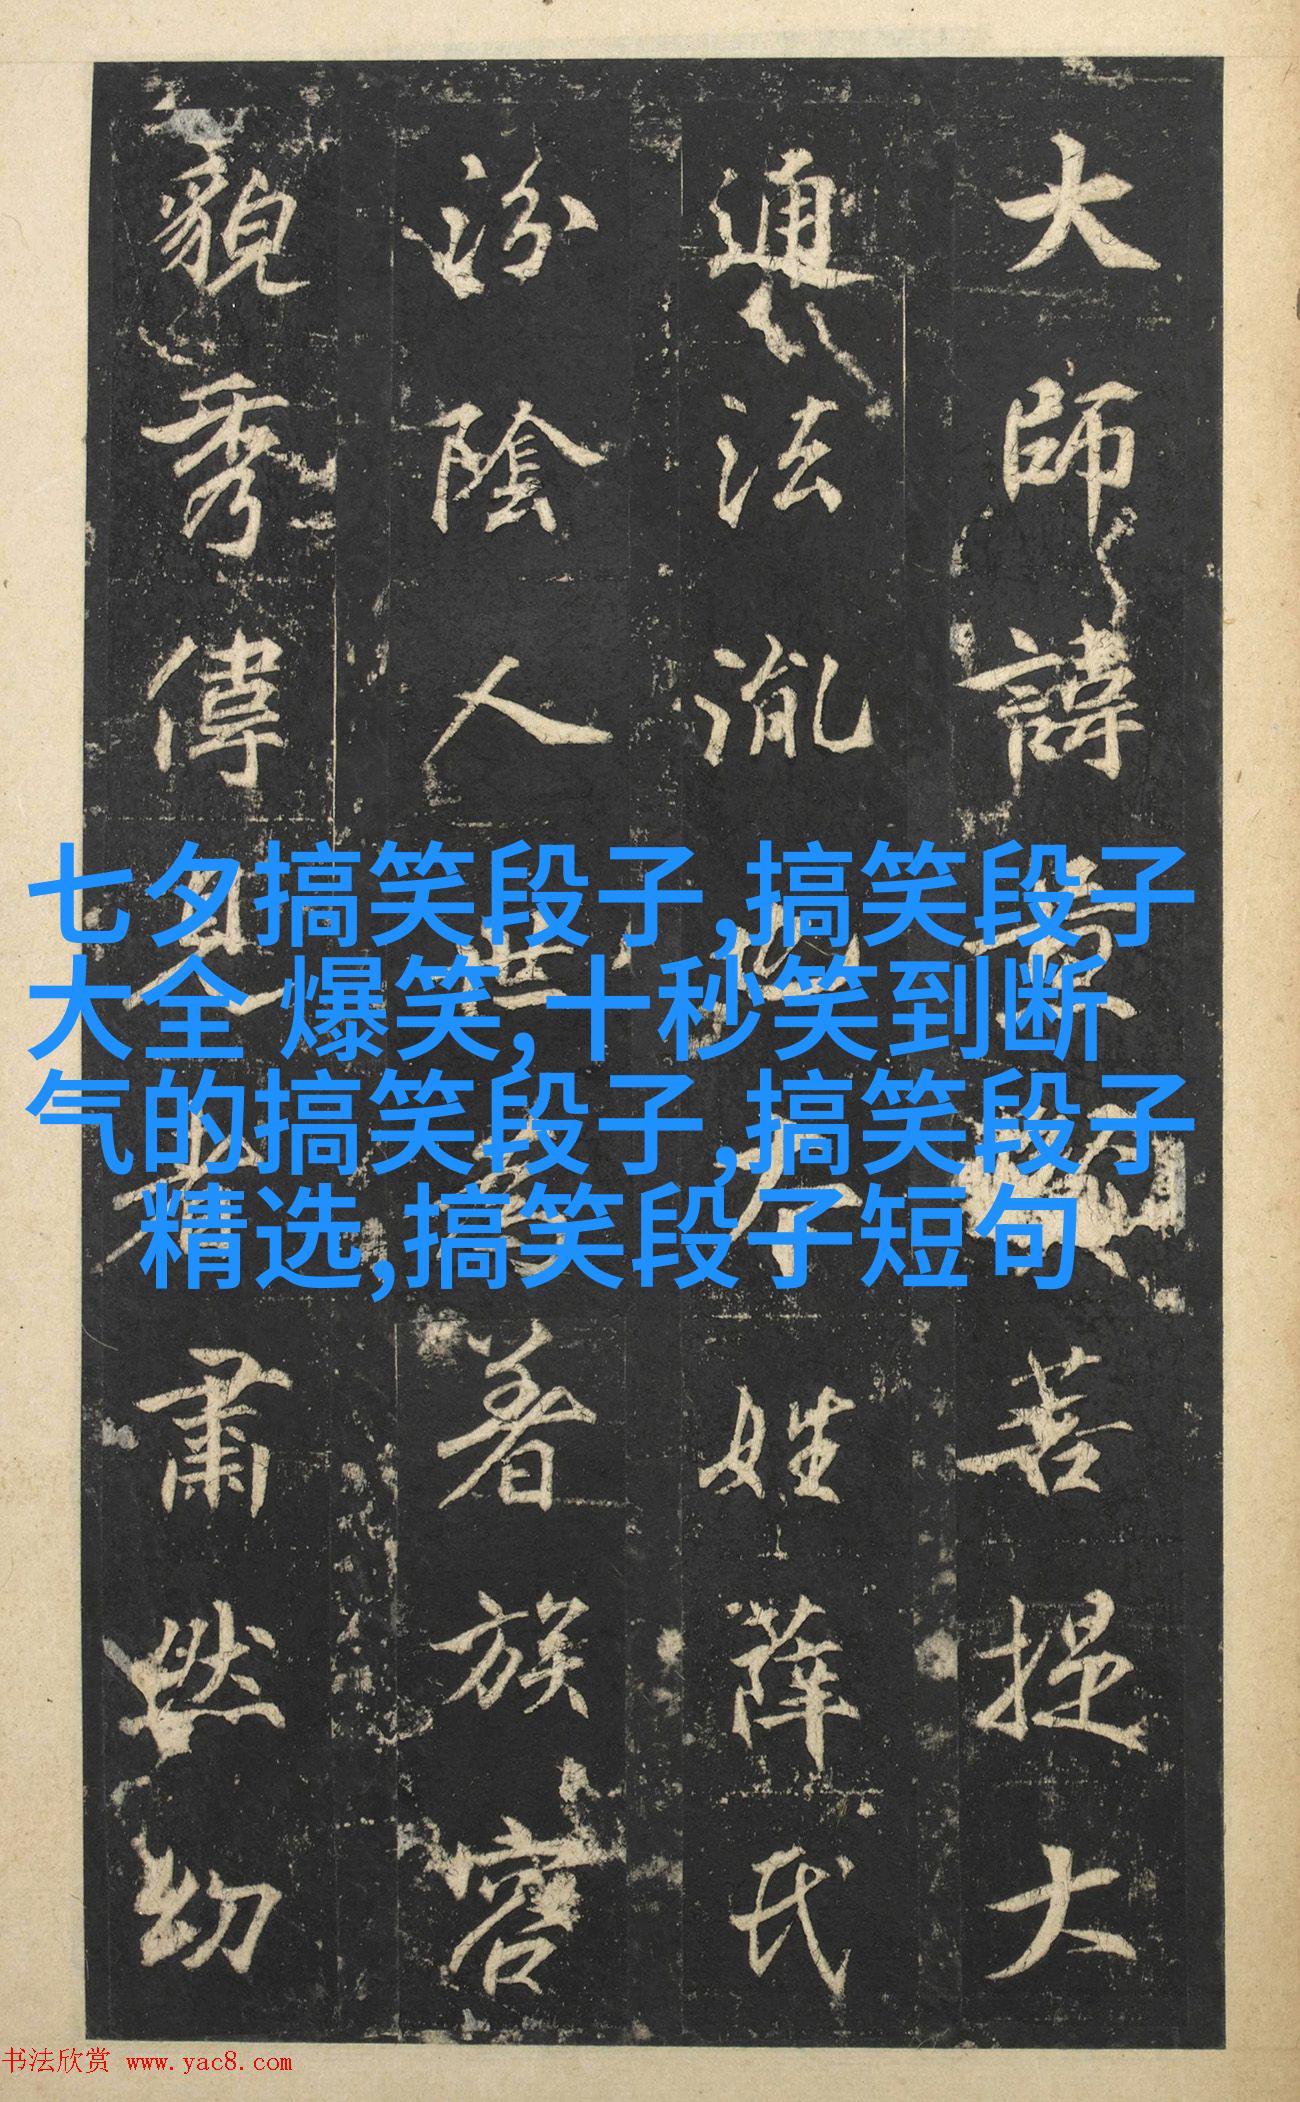 大師諱菩提大
通法胤姓薛氏
汾陰人世著族容
貌秀偉見者肅然幼
七夕搞笑段子,搞笑段子
大全 爆笑,十秒笑到断
气的搞笑段子,搞笑段子
精选,搞笑段子短句
书法欣赏 www.yac8.com